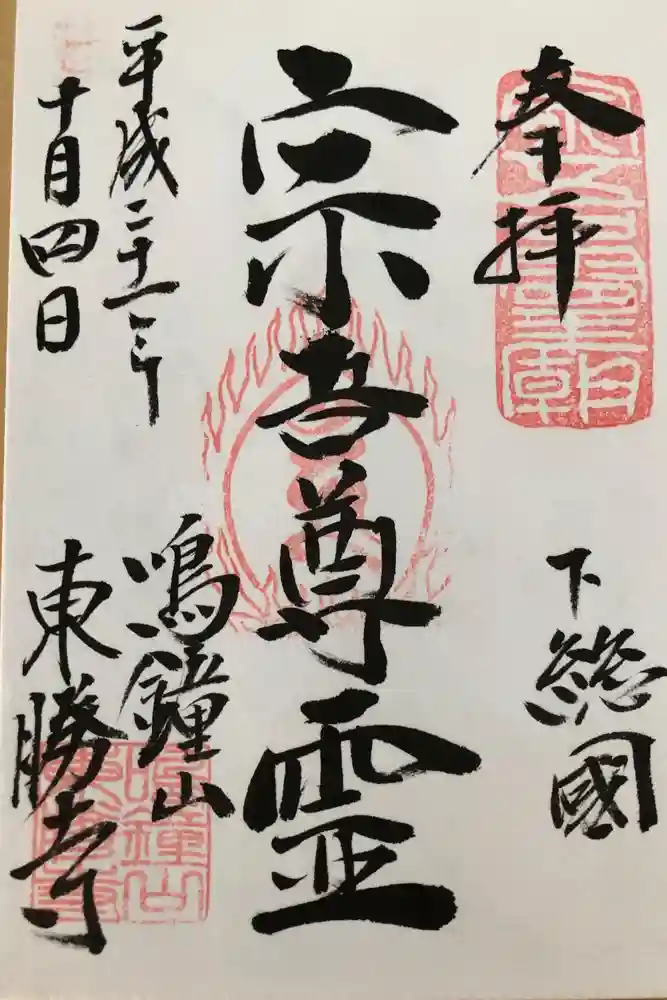 奉拝
下總國
宗吾尊霊
平成二十一年
十月四日
鳴鐘山
東勝寺